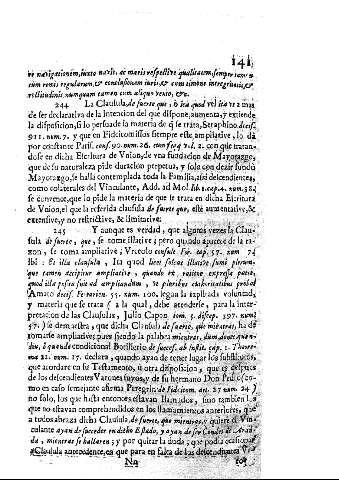 141
re navigationem, iuxta maris, ac maris respectivè qualitatem, semper tamen
cum remis regularum, & conclusionum iuris, & cum timone integritatis, &
rectitudinis, nunquam tamen cum aliquo vento, &c.
244 La Clausula, de suerte que, ò ita quod vel ita ut à mas
de ser declarativa de la intencion del que dispone, aumenta, y extiende
la disposicion, si lo persuade la materia de q̃ se trata, Seraphino decis.
911. num. 7. y que en Fideicomissos siempre este ampliative, lo dà
por constante Paris. cons. 90. num. 26. cum seq. vol. 2. con que tratan-
dose en dicha Escritura de Vnion, de vna fundacion de Mayorazgo,
que de su naturaleza pide duracion perpetua, y solo con dezir fundò
Mayorazgo, se halla contemplada toda la Familia, assi descendientes,
como colaterales del Vinculante, Add. ad Mol. lib. 1. cap. 4. num. 38.
se convence, que lo pide la materia de que se trata en dicha Escritura
de Vnion, el que la referida clausula de suerte que, estè aumentativè, &
extensivè, y no restrictivè, & limitativè.
245 Y aunque es verdad, que algunas vezes la Clau-
sula de suerte que, se tome illative; pero quando aparece de la ra-
zon, se toma ampliative, Vrceolo consult. For. cap. 57. num. 74
Ibi: Et illa clausula, Ita quod licet soleat illative sumi plerum-
que tamen accipitur ampliative, quando ex ratione expressa patet,
quod illa posita fuit ad ampliandum, ut pluribus elaboratibus probat
Amato decis. Ferrarien. 55. num. 100. segun la explicada voluntad,
y materia que se trata ( à la qual, debe atenderse, para la inter-
pretacion de las Clausulas, Julio Capon. tom. 5. discep. 397. num.
57. ) se demuestra, que dicha Clausula de suerte, que mientras, ha de
tomarse ampliative pues siendo la palabra mientras,
cap. 1. Theore-
ma 22. num. 15. declara, quando ayan de tener lugar los substitutos,
que acordare en su Testamento, ù otra disposicion, que es despues
de los descendientes Varones suyos, y de su hermano Don Pedro (co-
mo en caso semejante afirma Peregrin. de Fideicom. art. 27. num. 24 )
no solo, los que hasta entonces estavan llamados, sino tambien los
que no estavan comprehendidos en los llamamientos anteriores, que
a todos abraza dicha Clausula, de suerte, que mientras, y quiere el Vin-
culante ayan de succeder en dicho Estado, y ayan de ser Condes de Aran-
da, mientras se hallaren; y por quitar la duda; que podia ocasionar
Clausula antecedente, es que para en falta de los descendientes
Nn